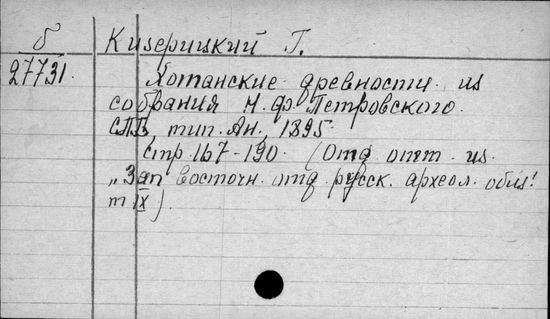 б Кизерицкий Г.
27731. Хотанские древности из
собрания Н. Ф. Петровского.
СПБ, тип. Ан., 1895.
стр. 167-190. (Отд. отт. из
„Зап Восточн. отд. русск. археол. общ."
т IX).